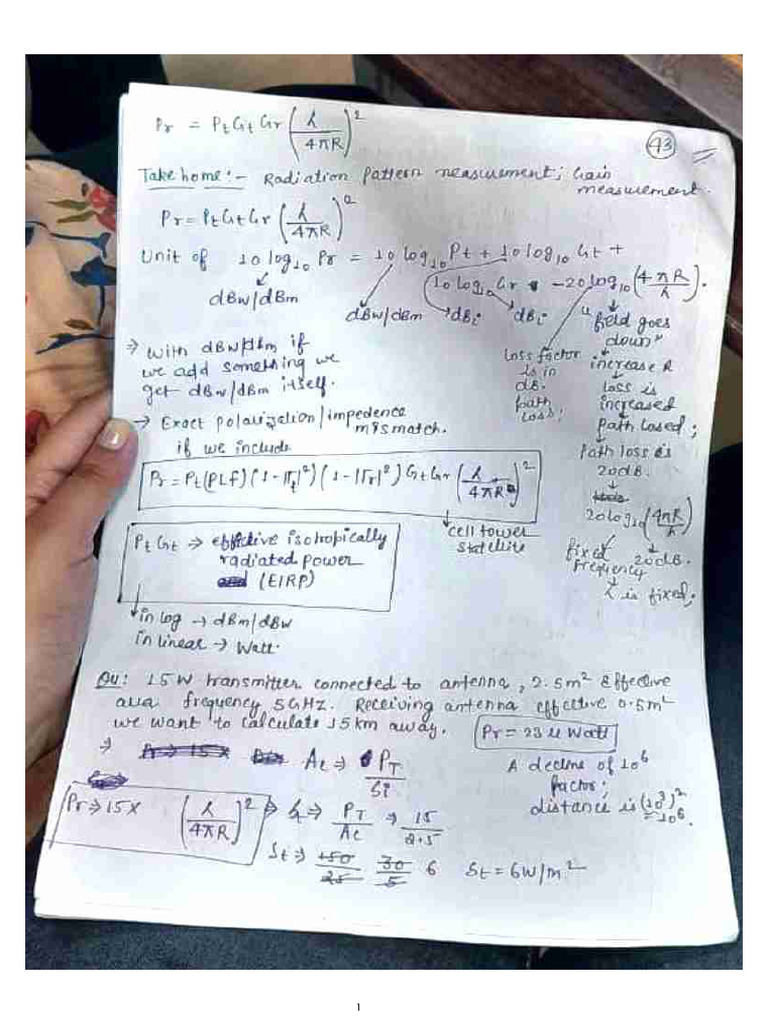 Pr = PtGtGr (λ/4πR)²
43
Take home:- Radiation Pattern measurement; Gain
measurement.
Pr = PtGtGr (λ/4πR)²
Unit of 10 log₁₀ Pr = 10 log₁₀ Pt + 10 log₁₀ Gt +
10 log₁₀ Gr - 20 log₁₀ (4πR/λ).
dBW/dBm
dBW/dBm dBi dBi
"field goes
down"
⇒ with dBW/dBm if
we add something we
get dBW/dBm itself.
Loss factor
is in
dB.
path
loss;
increase R
loss is
increased
path Losed;
Path loss is
20dB.
20log₁₀ (4πR/λ)
fixed
frequency
20dB.
λ is fixed;
→ Exact polarization/impedence
mismatch.
if we include
Pr = Pt(PLf) (1-|Γt|²) (1-|Γr|²) GtGr (λ/4πR)²
cell tower
statellite
PtGt → effective isotropically
radiated power
(EIRP)
in log → dBm/dBW
in linear → Watt.
Qu: 15W transmitter connected to antenna, 2.5m² Effective
area frequency 5GHz. Receiving antenna effective 0.5m²
we want to calculate 15km away.
Pr = 23 u Watt
⇒ Ae ⇒ PT/Si
A decline of 10⁶
factor;
distance is (10³)²
=10⁶.
Pr ⇒ 15 x (λ/4πR)²
⇒ PT/Ae ⇒ 15/2.5
St ⇒ 150/25 30/5 6 St = 6W/m²
1